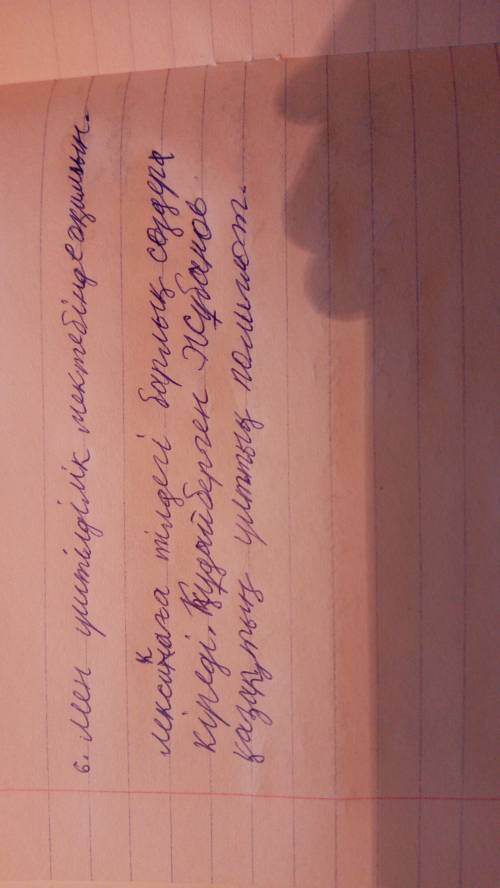 6. Мен үштілділік мектебінде оқимын.
Лексикаға тілдегі барлық сөздера
кіреді. Құдайберген Жұбанов
қазақтың ұлттық полиглот.